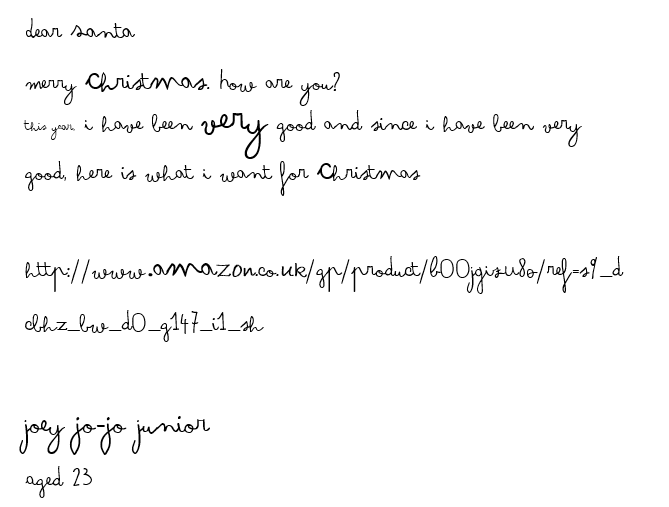 dear santa
merry christmas. how are you?
this year, i have been very good and since i have been very
good, here is what i want for christmas
http://www.amazon.co.uk/gp/product/b00jgizu8o/ref=s9_d
cbhz_bw_d0_g147_i1_sh
joey jo-jo junior
aged 23